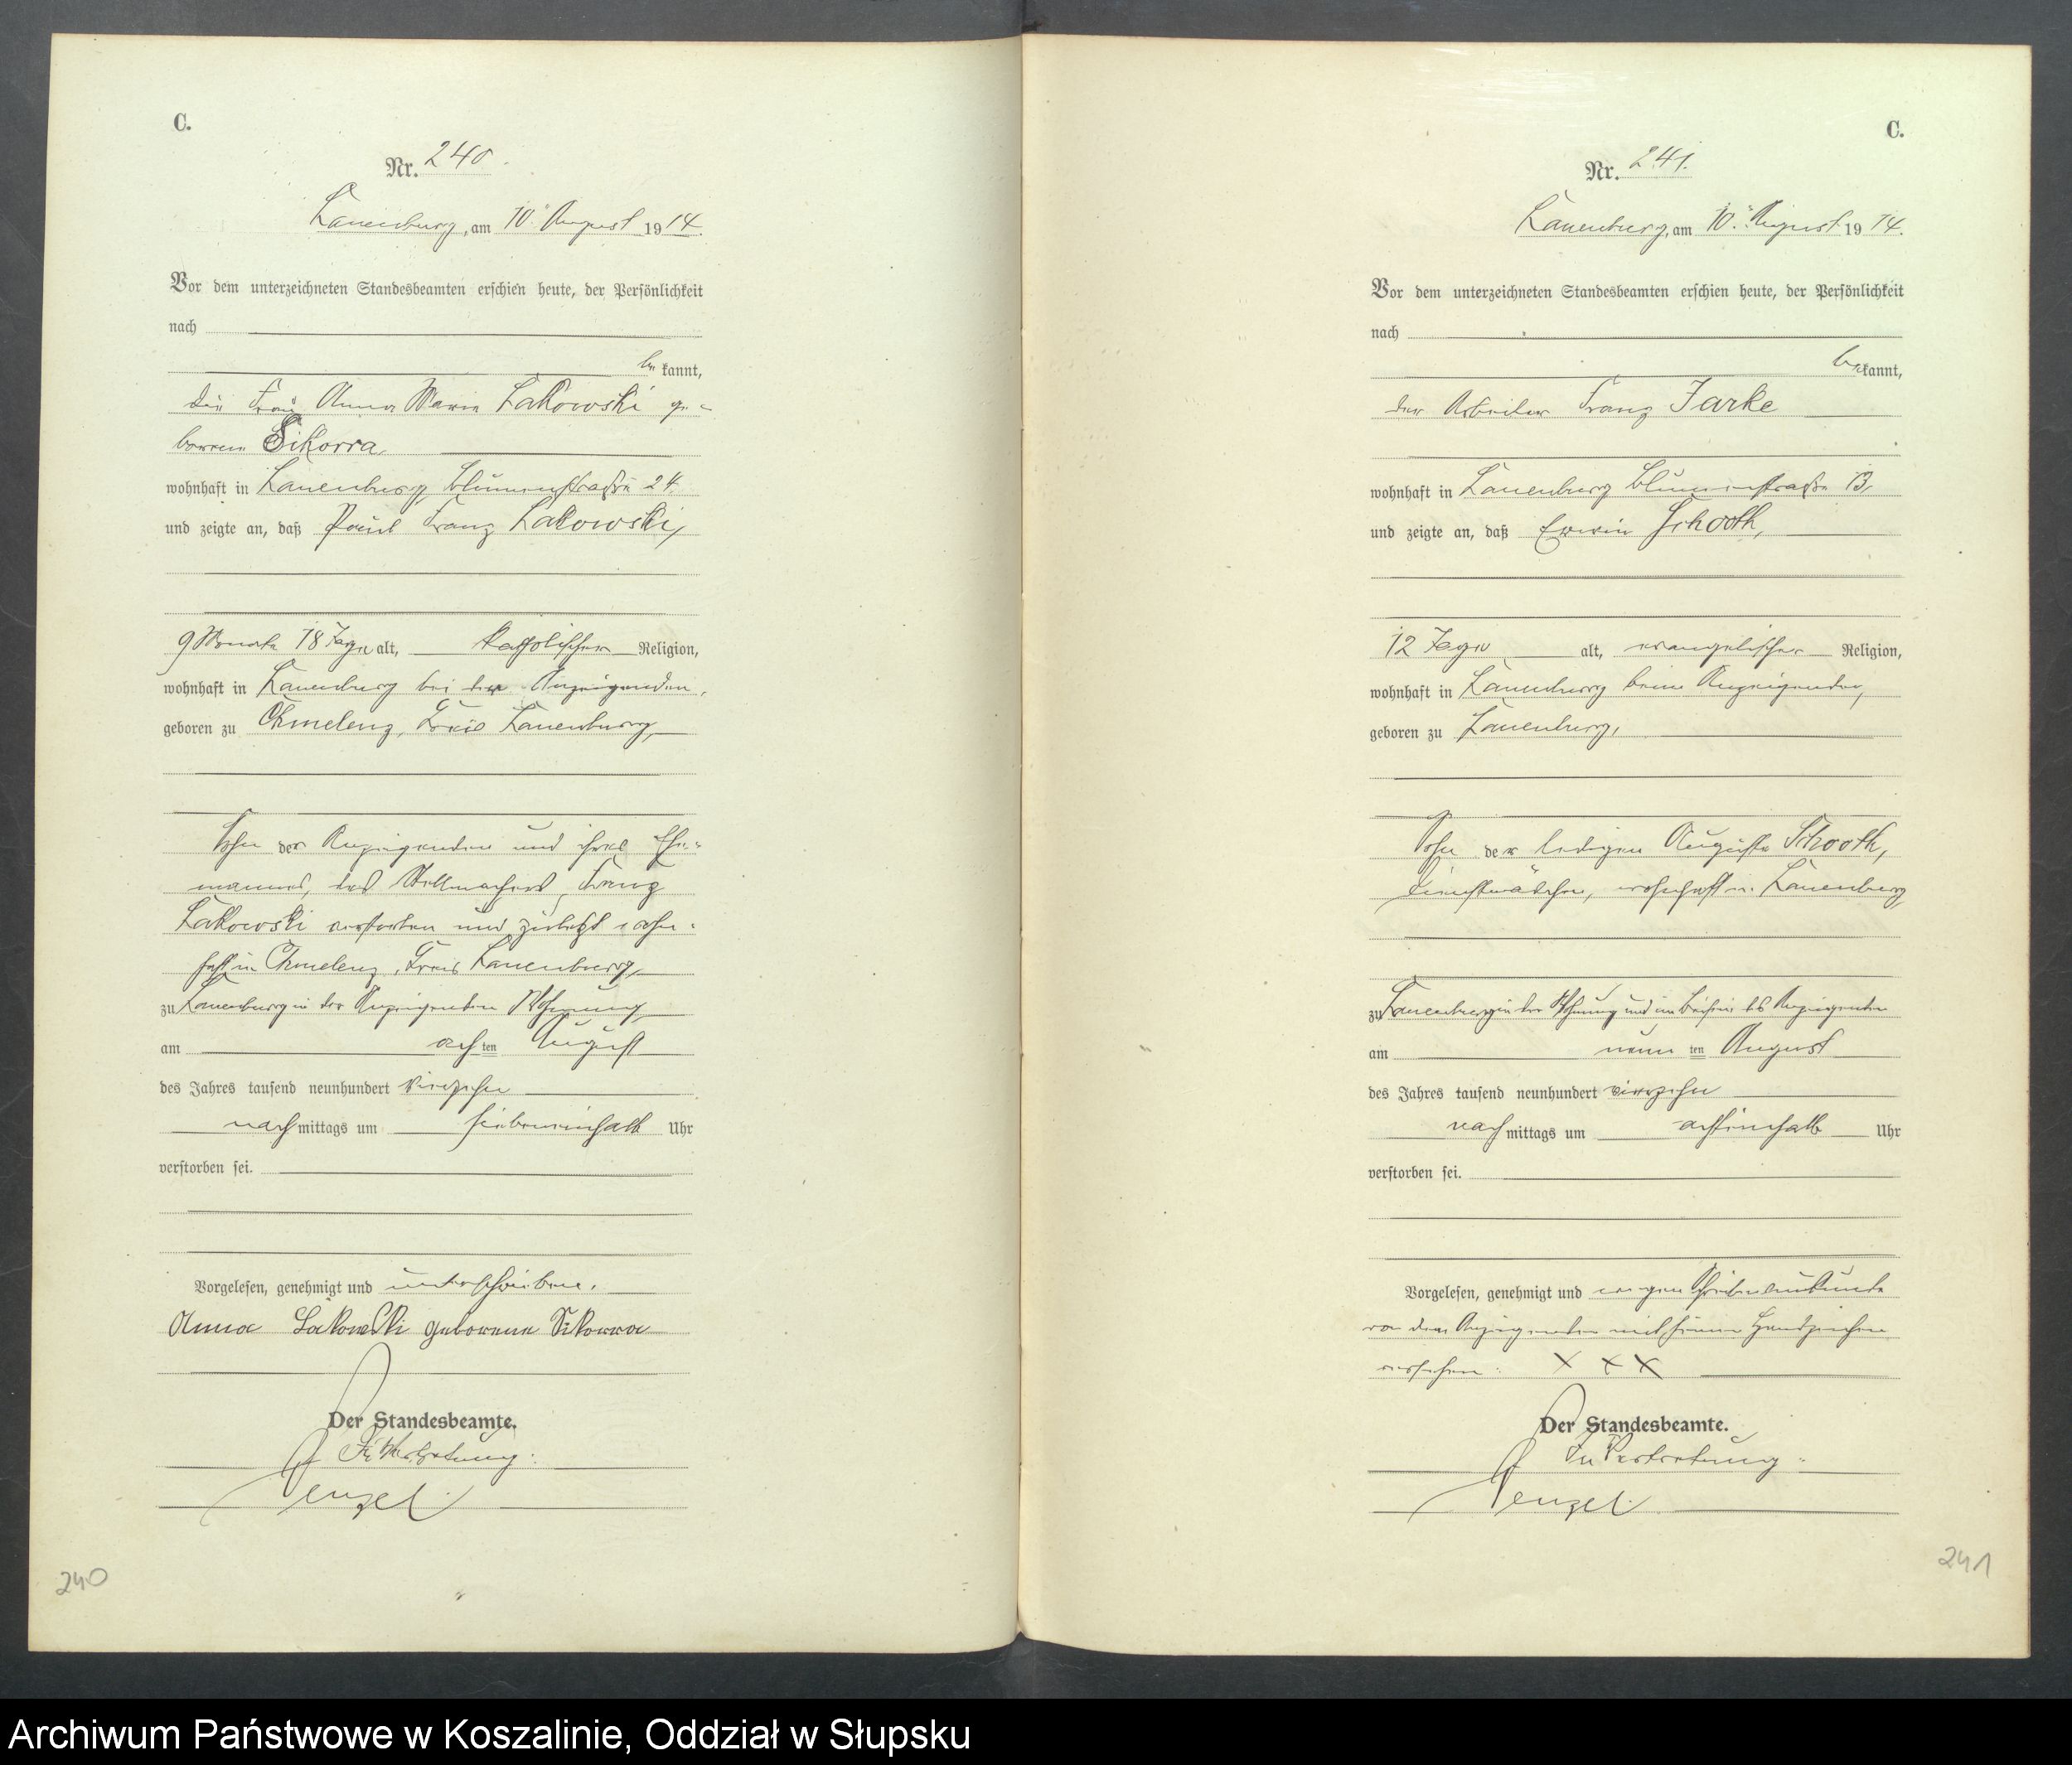 C.
Nr. 240.
Lauenburg, am 10. August 1914.
Vor dem unterzeichneten Standesbeamten erschien heute, der Persönlichkeit
nach
bekannt,
die Frau Anna Maria Lakowski ge-
borene Sikorra,
wohnhaft in Lauenburg Blumenstraße 24.
und zeigte an, daß Paul Franz Lakowski,
9 Monate 18 Tage alt, katholischer Religion,
wohnhaft in Lauenburg bei der Anzeigenden,
geboren zu Chmelenz, Kreis Lauenburg,
Sohn der Anzeigenden und ihres Ehe-
mannes, des Stellmachers Franz
Lakowski verstorben und zuletzt wohn-
haft in Chmelenz, Kreis Lauenburg,
zu Lauenburg in der Anzeigenden Wohnung,
am achten August
des Jahres tausend neunhundert vierzehn
nachmittags um siebeneinhalb Uhr
verstorben sei.
Vorgelesen, genehmigt und unterschrieben.
Anna Lakowski geborene Sikorra
Der Standesbeamte.
In Vertretung:
Wenzel.
240
C.
Nr. 241.
Lauenburg, am 10. August 1914.
Vor dem unterzeichneten Standesbeamten erschien heute, der Persönlichkeit
nach
bekannt,
der Arbeiter Franz Jarke
wohnhaft in Lauenburg Blumenstraße 13,
und zeigte an, daß Erwin Schooth,
12 Tage alt, evangelischer Religion,
wohnhaft in Lauenburg beim Anzeigenden,
geboren zu Lauenburg,
Sohn der ledigen Auguste Schooth,
Dienstmädchen, wohnhaft in Lauenburg,
zu Lauenburg in der Wohnung und im Beisein des Anzeigenden
am neunten August
des Jahres tausend neunhundert vierzehn
nachmittags um achteinhalb Uhr
verstorben sei.
Vorgelesen, genehmigt und wegen Schreibensunkunde
von dem Anzeigenden mit seinem Handzeichen
versehen: X X X
Der Standesbeamte.
In Vertretung:
Wenzel.
241
Archiwum Państwowe w Koszalinie, Oddział w Słupsku